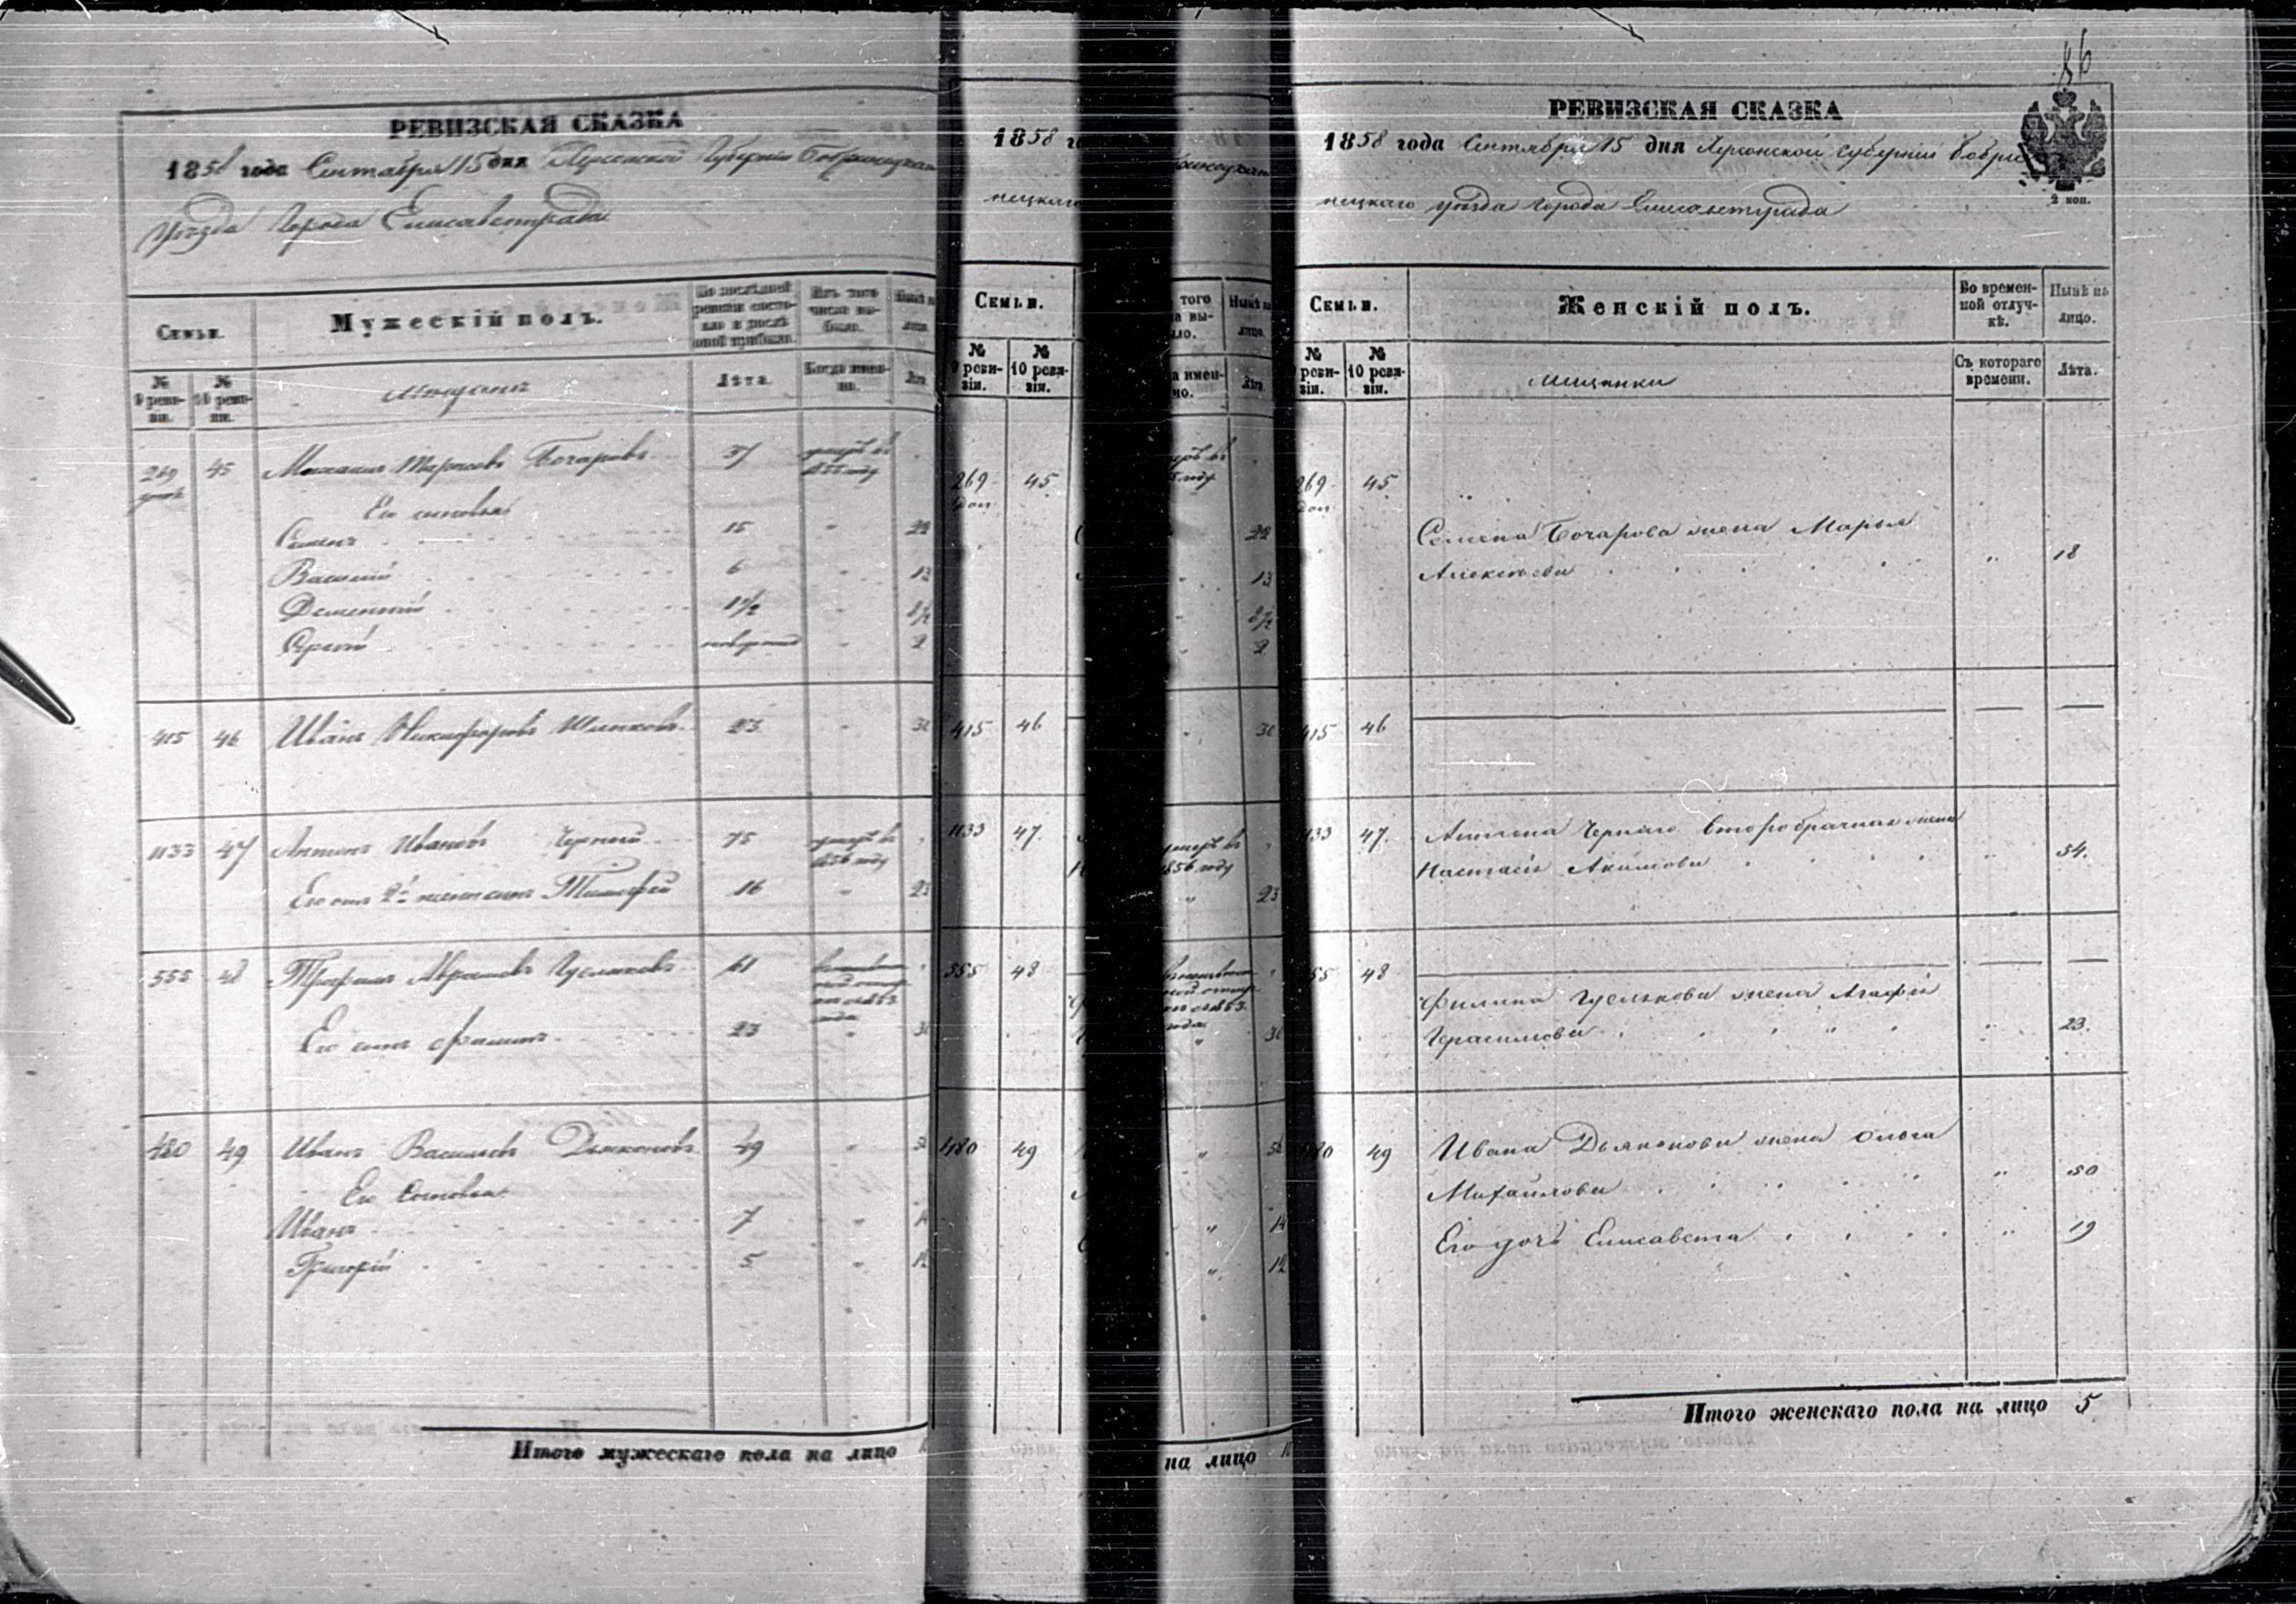 РЕВИЗСКАЯ СКАЗКА
1858 года Сентября 15 дня Херсонской Губернии Бобринецкаго
уѣзда Города Елисаветграда
Семьи.
Мужескій полъ.
По послѣдней ревизіи состояло и послѣ оной прибыло.
Изъ того числа выбыло.
Нынѣ на лицо.
№ 9 ревизіи.
№ 10 ревизіи.
Мещане
Лѣта.
Когда именно.
Лѣта.
269 45 Тарасовъ Бочаровъ 37 умеръ въ
году
Его сыновья
Семенъ 15 " 22
Василий 6 " 13
Дементий 1 1/2 " 8 1/2
2
415 46 Иванъ Никифоровъ 23 " 30
1133 47 Антонъ Ивановъ Черный 75 умеръ въ
1856 году
Его отъ 2й жены сынъ Тимофей 16 " 23
555 48 61
1853
года
Его сынъ Филипъ 23 " 30
480 49 Иванъ Васильевъ Дьяконовъ 49 "
Его Сыновья
Иванъ 7 " 14
Григорий 5 " 12
Итого мужескаго пола на лицо
1858
нецкаго
Семьи.
№ 9 ревизіи.
№ 10 ревизіи.
269 45
доп
415 46
1133 47.
555 48
480 49
того
Нынѣ на
лицо.
Лѣта
умеръ въ
1856 году
22
13
8 1/2
2
30
23
30
14
12
на лицо
86
РЕВИЗСКАЯ СКАЗКА
1858 года Сентября 15 дня Херсонской Губернии Бобри
нецкаго уѣзда Города Елисаветграда
2 коп.
Семьи.
Женскій полъ.
Во временной отлучкѣ.
Нынѣ на лицо.
№ 9 ревизіи.
№ 10 ревизіи.
Мещанки
Съ котораго времени.
Лѣта.
269 45
доп
Семена Бочарова жена Марья
Алексѣева " 18
415 46
1133 47. Антона Чернаго второбрачная жена
Настасья Акимова " 54.
555 48
Филипа Гуслякова жена Агафья
Герасимова " 23.
480 49 Ивана Дьяконова жена Ольга
Михайлова " 50
Его дочь Елисавета " 19
Итого женскаго пола на лицо 5